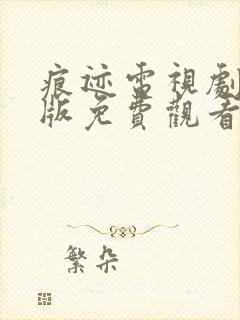 痕迹電視劇
版免費觀看
繁朵